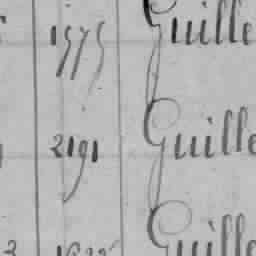 1575 Guille
2191 Guille
Guille